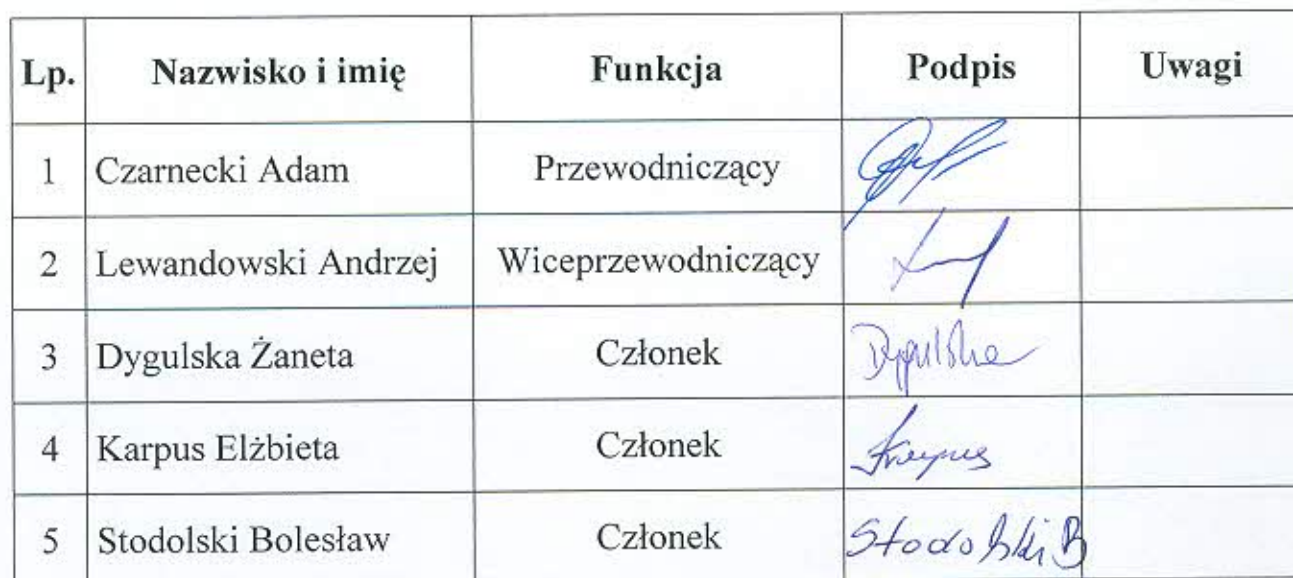 Lp. Nazwisko i imię Funkcja Podpis Uwagi
1 Czarnecki Adam Przewodniczący
2 Lewandowski Andrzej Wiceprzewodniczący
3 Dygulska Żaneta Członek Dygulska
4 Karpus Elżbieta Członek Karpus
5 Stodolski Bolesław Członek Stodolski B